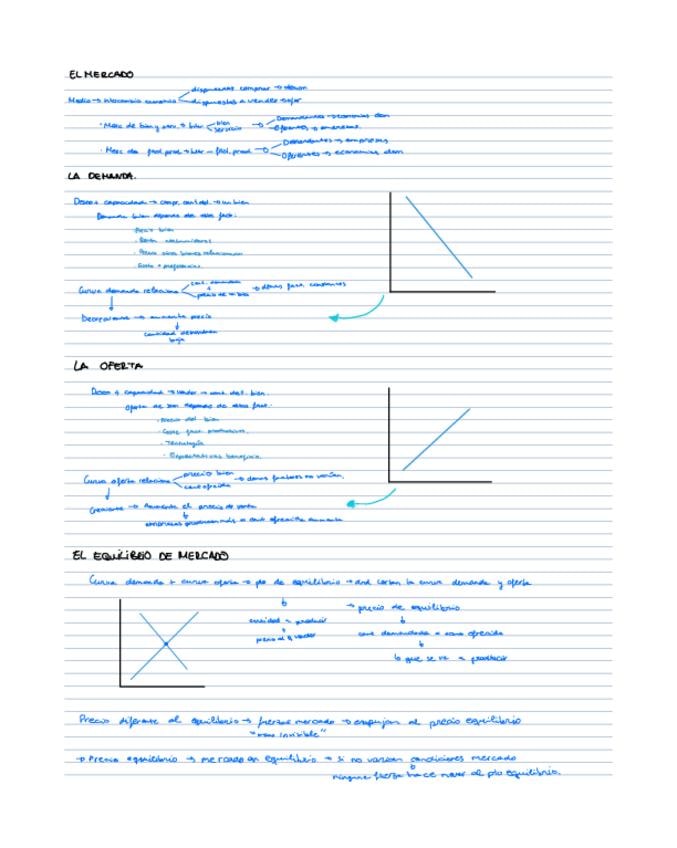 EL MERCADO
dispuestos comprar → deman
Medio → intercambio
dispuestos a vender → ofer
· Merc de bien y serv. → bien servicio → Demandantes → economías dom
Oferentes → empresas.
· Merc de fact. prod. → fact. prod. → Demandantes → empresas
Oferentes → economías dom.
LA DEMANDA.
Deseo + capacidad → compr. cantid. → un bien
Demanda bien depende de fact.
· Precio bien
· Renta
· Precio otros bienes relacionados
· Gusto + preferencias
Curva demanda relaciona cant. demandada → demás fact. constantes
precio de
Decreciente → aumenta precio
↓
cantidad demandada
baja
LA OFERTA
Deseo + capacidad → vender → cant. del bien.
Oferta de bien depende de fact.
· Precio del bien
· Coste fact. productivos.
· Tecnología
· Expectativas beneficio.
precio bien
Curva oferta relaciona → demás factores no varían.
cant ofrecida
Creciente → Aumenta el precio de venta
empresas producen más = cant ofrecida aumenta
EL EQUILIBRIO DE MERCADO
Curva demanda + curva oferta → pto de equilibrio → dnd cortan la curva demanda y oferta
cantidad a producir
precio al q vender
→ precio de equilibrio
↓
cant demandada = cant ofrecida
↓
lo que se va a producir
Precio diferente al equilibrio → fuerzas mercado → empujan al precio equilibrio
"mano invisible"
→ Precio equilibrio → mercado en equilibrio → si no varían condiciones mercado
ninguna fuerza hace mover al pto equilibrio.